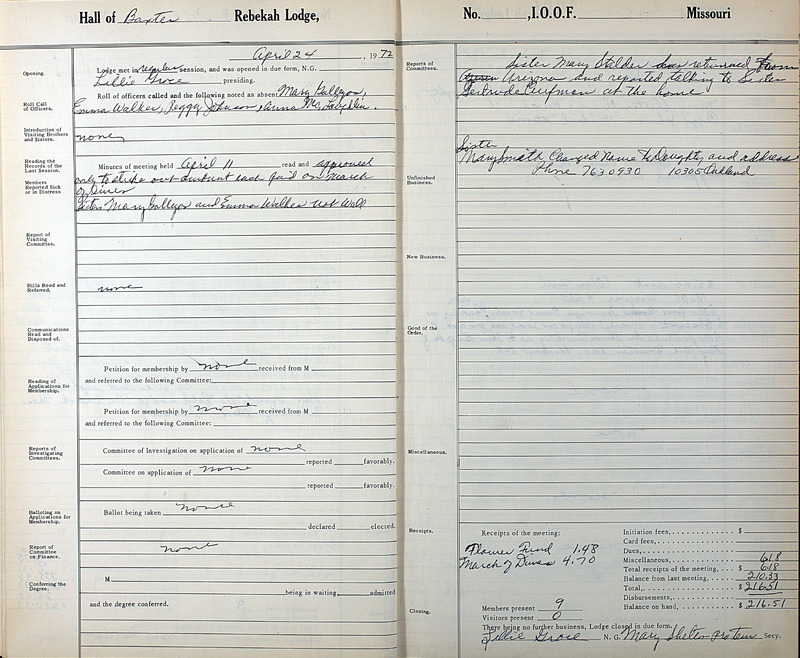 Hall of Baxter Rebekah Lodge,
April 24, 1972
Opening.
Lodge met in regular session, and was opened in due form, N.G.
Lillie Groce presiding.
Roll Call of Officers.
Roll of officers called and the following noted as absent Mary Gallyon,
Emma Walker, Peggy Johnson, Anna Mc Laughlin.
Introduction of Visiting Brothers and Sisters.
none
Reading the Records of the Last Session.
Minutes of meeting held April 11 read and approved
only to strike out amount each paid on March
of Dimes
Members Reported Sick or in Distress
Sisters Mary Gallyon and Emma Walker not Well
Report of Visiting Committee.
Bills Read and Referred.
none
Communications Read and Disposed of.
Petition for membership by none received from M
and referred to the following Committee:
Reading of Applications for Membership.
Petition for membership by none received from M
and referred to the following Committee:
Reports of Investigating Committees.
Committee of Investigation on application of none
reported favorably.
Committee on application of none
reported favorably.
Balloting on Applications for Membership.
Ballot being taken none
declared elected.
Report of Committee on Finance.
none
Conferring the Degree.
M
being in waiting, admitted
and the degree conferred.
No. , I.O.O.F. Missouri
Reports of Committees.
Sister Mary Stelder has returned from
Arizona and reported talking to Sister
Gertrude at the home
Sister
Mary Smith Changed Name to Doughty and address
Phone 763 0930 10305 Oakland
Unfinished Business.
New Business.
Good of the Order.
Miscellaneous.
Receipts.
Receipts of the meeting:
Flower Fund 1.48
March of Dimes 4.70
Initiation fees, $
Card fees,
Dues,
Miscellaneous, 6.18
Total receipts of the meeting, $ 6.18
Balance from last meeting, 210.33
Total, $ 216.51
Disbursements,
Balance on hand, $ 216.51
Closing.
Members present 9
Visitors present 0
There being no further business, Lodge closed in due form.
Lillie Groce N. G. Mary protem Secy.